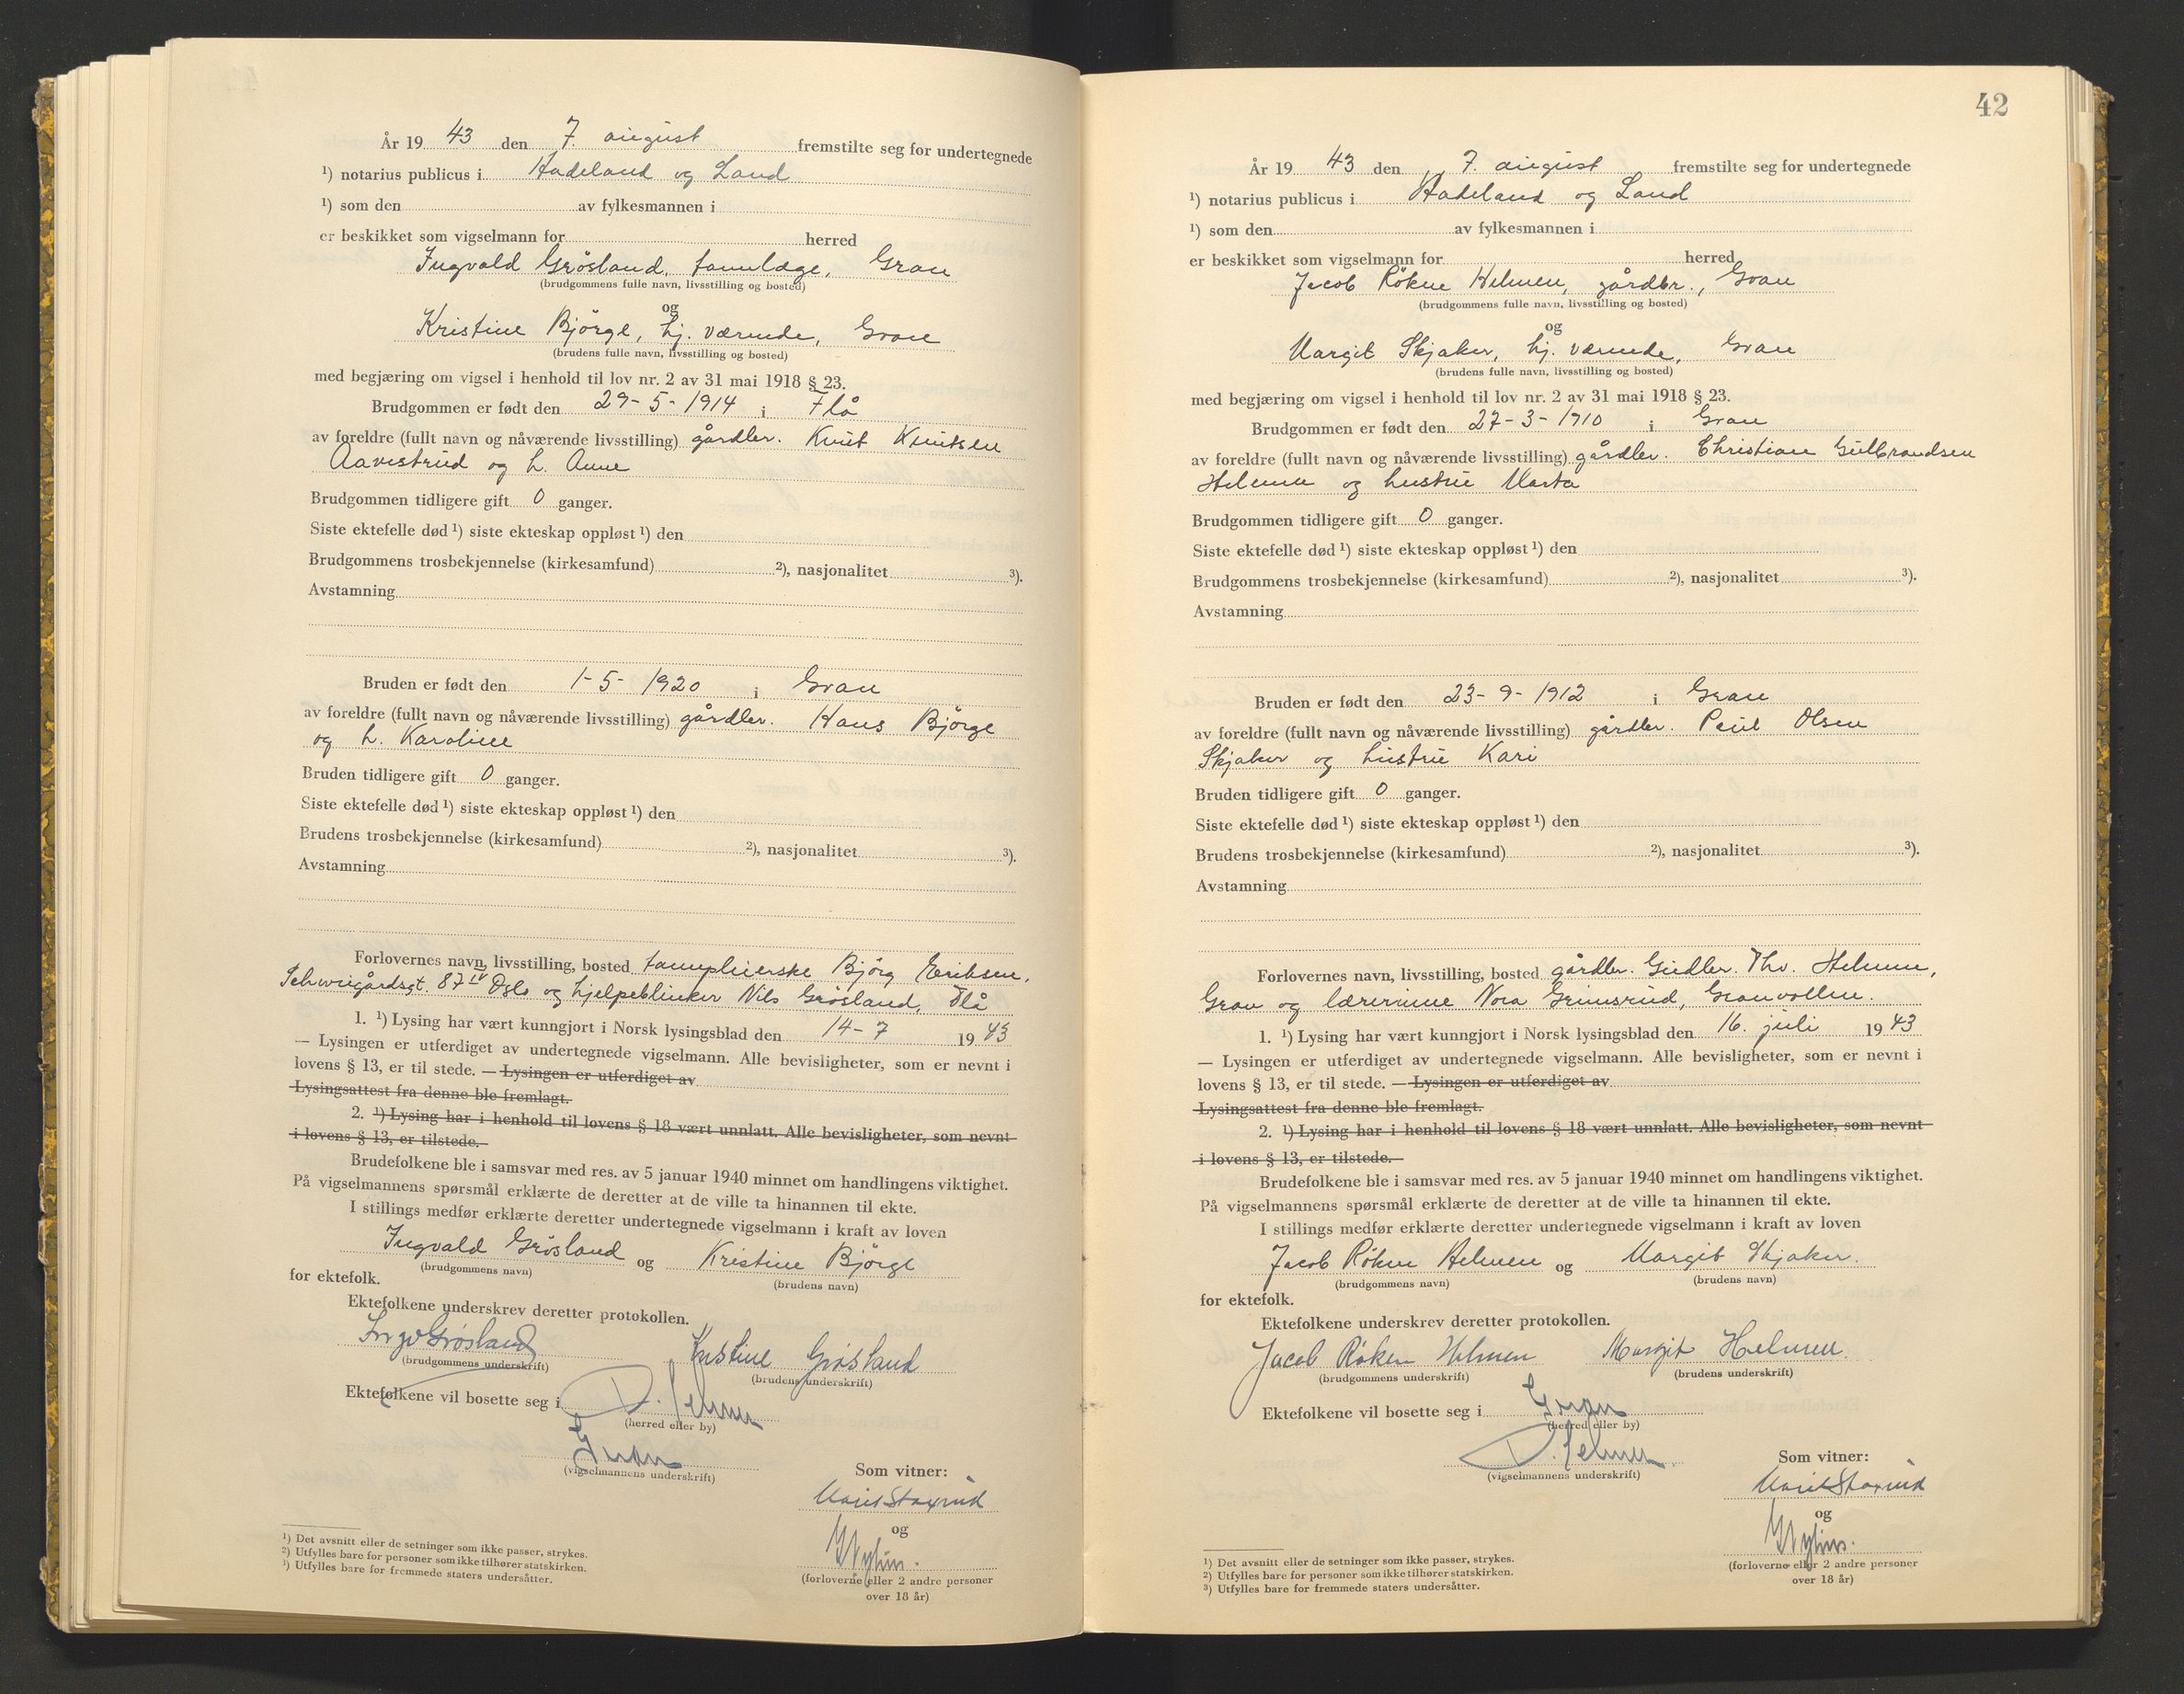 År 19 43 den 7. august fremstilte seg for undertegnede
¹) notarius publicus i Hadeland og Land
¹) som den av fylkesmannen i
er beskikket som vigselmann for herred
Ingvald Grøsland, tannlæge, Gran
(brudgommens fulle navn, livsstilling og bosted)
og
Kristine Bjørge, hj. værende, Gran
(brudens fulle navn, livsstilling og bosted)
med begjæring om vigsel i henhold til lov nr. 2 av 31 mai 1918 § 23.
Brudgommen er født den 29-5-1914 i Flå
av foreldre (fullt navn og nåværende livsstilling) gårdbr. Knut Knutsen
Aavestrud og h. Anne
Brudgommen tidligere gift 0 ganger.
Siste ektefelle død ¹) siste ekteskap oppløst ¹) den
Brudgommens trosbekjennelse (kirkesamfund) ²), nasjonalitet ³).
Avstamning
Bruden er født den 1-5-1920 i Gran
av foreldre (fullt navn og nåværende livsstilling) gårdbr. Hans Bjørge
og h. Karoline
Bruden tidligere gift 0 ganger.
Siste ektefelle død ¹) siste ekteskap oppløst ¹) den
Brudens trosbekjennelse (kirkesamfund) ²), nasjonalitet ³).
Avstamning
Forlovernes navn, livsstilling, bosted tannpleierske Bjørg Eriksen,
Schweigårdsgt. 87 IV Oslo og hjelpeblinker Nils Grøsland, Flå
1. ¹) Lysing har vært kunngjort i Norsk lysingsblad den 14-7 19 43
— Lysingen er utferdiget av undertegnede vigselmann. Alle bevisligheter, som er nevnt i
lovens § 13, er til stede. — Lysingen er utferdiget av
Lysingsattest fra denne ble fremlagt.
2. ¹) Lysing har i henhold til lovens § 18 vært unnlatt. Alle bevisligheter, som nevnt
i lovens § 13, er tilstede. —
Brudefolkene ble i samsvar med res. av 5 januar 1940 minnet om handlingens viktighet.
På vigselmannens spørsmål erklærte de deretter at de ville ta hinannen til ekte.
I stillings medfør erklærte deretter undertegnede vigselmann i kraft av loven
Ingvald Grøsland og Kristine Bjørge
(brudgommens navn) (brudens navn)
for ektefolk.
Ektefolkene underskrev deretter protokollen.
Ingv Grøsland Kristine Grøsland
(brudgommens underskrift) (brudens underskrift)
Ektefolkene vil bosette seg i
(herred eller by)
Gran
(vigselmannens underskrift)
Som vitner:
Marit Staxrud
og
(forloverne eller 2 andre personer
over 18 år)
¹) Det avsnitt eller de setninger som ikke passer, strykes.
²) Utfylles bare for personer som ikke tilhører statskirken.
³) Utfylles bare for fremmede staters undersåtter.
42
År 19 43 den 7. august fremstilte seg for undertegnede
¹) notarius publicus i Hadeland og Land
¹) som den av fylkesmannen i
er beskikket som vigselmann for herred
Jacob Røkne Helmen, gårdbr., Gran
(brudgommens fulle navn, livsstilling og bosted)
og
Margit Skjaker, hj. værende, Gran
(brudens fulle navn, livsstilling og bosted)
med begjæring om vigsel i henhold til lov nr. 2 av 31 mai 1918 § 23.
Brudgommen er født den 27-3-1910 i Gran
av foreldre (fullt navn og nåværende livsstilling) gårdbr. Christian Gulbrandsen
Helmen og hustru Marta
Brudgommen tidligere gift 0 ganger.
Siste ektefelle død ¹) siste ekteskap oppløst ¹) den
Brudgommens trosbekjennelse (kirkesamfund) ²), nasjonalitet ³).
Avstamning
Bruden er født den 23-9-1912 i Gran
av foreldre (fullt navn og nåværende livsstilling) gårdbr. Paul Olsen
Skjaker og hustru Kari
Bruden tidligere gift 0 ganger.
Siste ektefelle død ¹) siste ekteskap oppløst ¹) den
Brudens trosbekjennelse (kirkesamfund) ²), nasjonalitet ³).
Avstamning
Forlovernes navn, livsstilling, bosted gårdbr. Gudbr. Thv. Helmen,
Gran og lærerinne Nora Grimsrud, Granvollen.
1. ¹) Lysing har vært kunngjort i Norsk lysingsblad den 16. juli 19 43
— Lysingen er utferdiget av undertegnede vigselmann. Alle bevisligheter, som er nevnt i
lovens § 13, er til stede. — Lysingen er utferdiget av
Lysingsattest fra denne ble fremlagt.
2. ¹) Lysing har i henhold til lovens § 18 vært unnlatt. Alle bevisligheter, som nevnt
i lovens § 13, er tilstede. —
Brudefolkene ble i samsvar med res. av 5 januar 1940 minnet om handlingens viktighet.
På vigselmannens spørsmål erklærte de deretter at de ville ta hinannen til ekte.
I stillings medfør erklærte deretter undertegnede vigselmann i kraft av loven
Jacob Røkne Helmen og Margit Skjaker.
(brudgommens navn) (brudens navn)
for ektefolk.
Ektefolkene underskrev deretter protokollen.
Jacob Røken Helmen Margit Helmen.
(brudgommens underskrift) (brudens underskrift)
Ektefolkene vil bosette seg i Gran
(herred eller by)
(vigselmannens underskrift)
Som vitner:
Marit Staxrud
og
(forloverne eller 2 andre personer
over 18 år)
¹) Det avsnitt eller de setninger som ikke passer, strykes.
²) Utfylles bare for personer som ikke tilhører statskirken.
³) Utfylles bare for fremmede staters undersåtter.